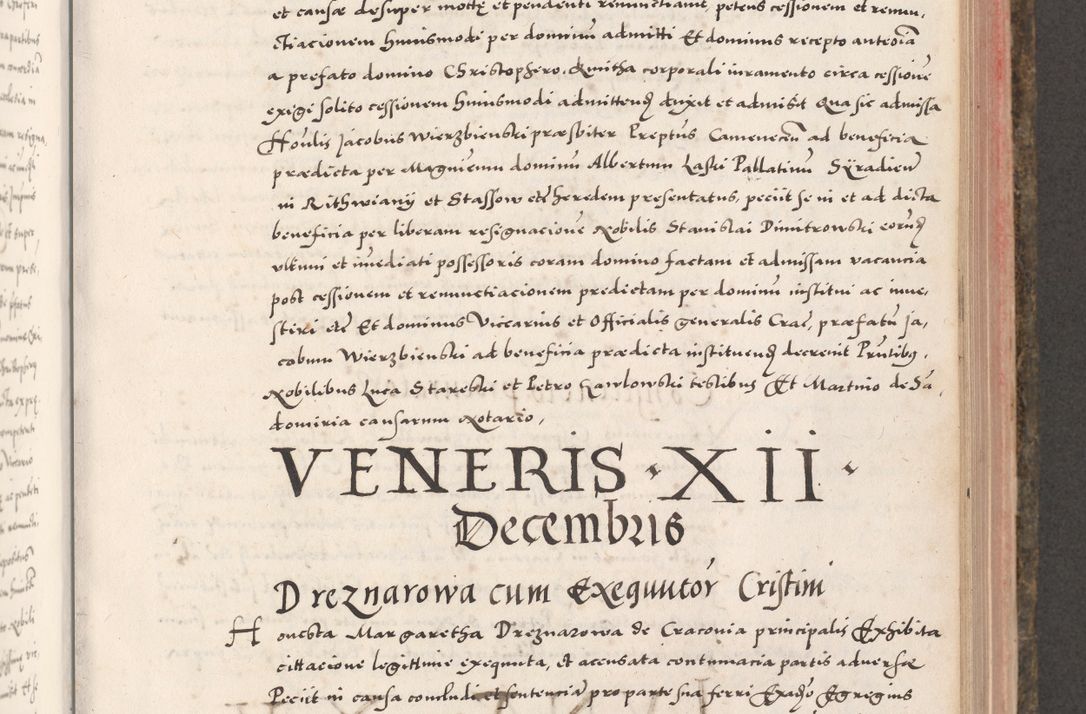 et causæ desuper motę et pendenti renunctiavit, petens cessionem et renun,
ctiacionem huiusmodi per dominum admitti Et dominus recepto anteoia
a prefato domino Christophero Kmitha corporali iuramento circa cessione
exigi solito cessionem huiusmodi admittend duxit et admisit Qua sic admissa
Houlis Jacobus Wierzbienski præsbiter Preptus Camenecen ad beneficia
prædicta per Magnicum dominum Albertum Laski Pallatinum Syradien
in Rithwiany et Stassow etc heredem presentatus, peciit se in et ad dicta
beneficia per liberam resignacione Nobilis Stanislai Dmitrowski eorund
ultimi et imediati possessoris coram domino factam et admissam vacancia
post cessionem et renunctiacionem predictam per dominum institui ac inve,
stiri etc Et dominus Viccarius et Officialis generalis Crac, præfatum Ja,
cobum Wierzbienski ad beneficia prædicta instituend decrevit Pntibq,
Nobilibus Luca Stareski et Petro Kawlowski testibus Et Martino de Sa
domiria causarum Notario,
VENERIS · XII ·
Decembris
Dreznarowa cum Exequutor Cristini
Honesta Margaretha Dreznarowa de Cracovia principalis Exhibita
cittacione legittime exequuta, et accusata contumacia partis adversæ
Peciit in causa concludi et sententia pro parte sua ferri Exadso Egregius